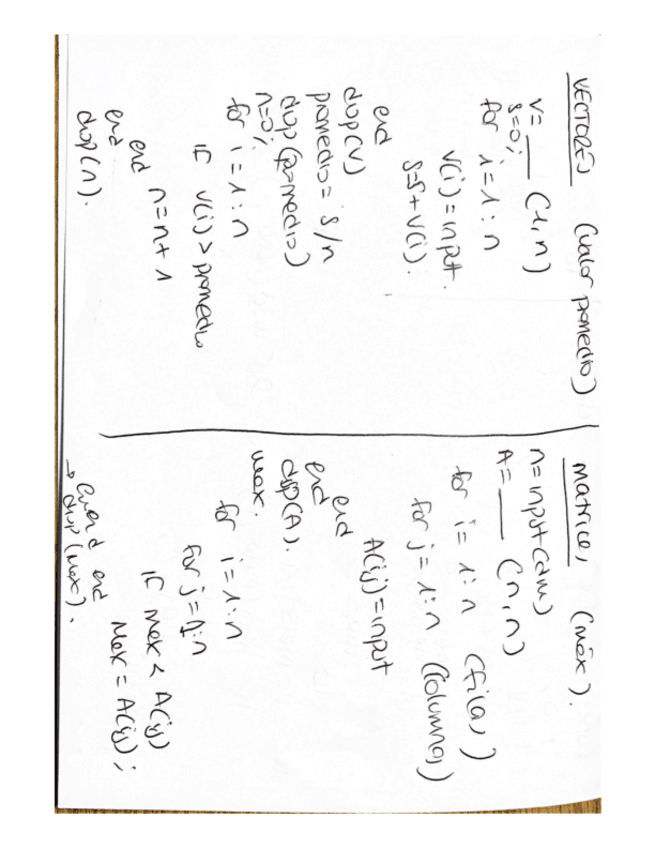 VECTORES (valor promedio)
V= ___ (1,n)
s=0;
for i=1:n
V(i)=input.
s=s+V(i).
end
disp(V)
promedio= s/n
disp(promedio)
n=0;
for i=1:n
if V(i)>promedio
n=n+1
end
end
disp(n).
matrices (máx).
n=input(dim)
A= ___ (n,n)
for i=1:n (filas)
for j=1:n (columnas)
A(i,j)=input
end
end
disp(A).
max.
for i=1:n
for j=1:n
if max < A(i,j)
max = A(i,j);
end end
→ disp(max).